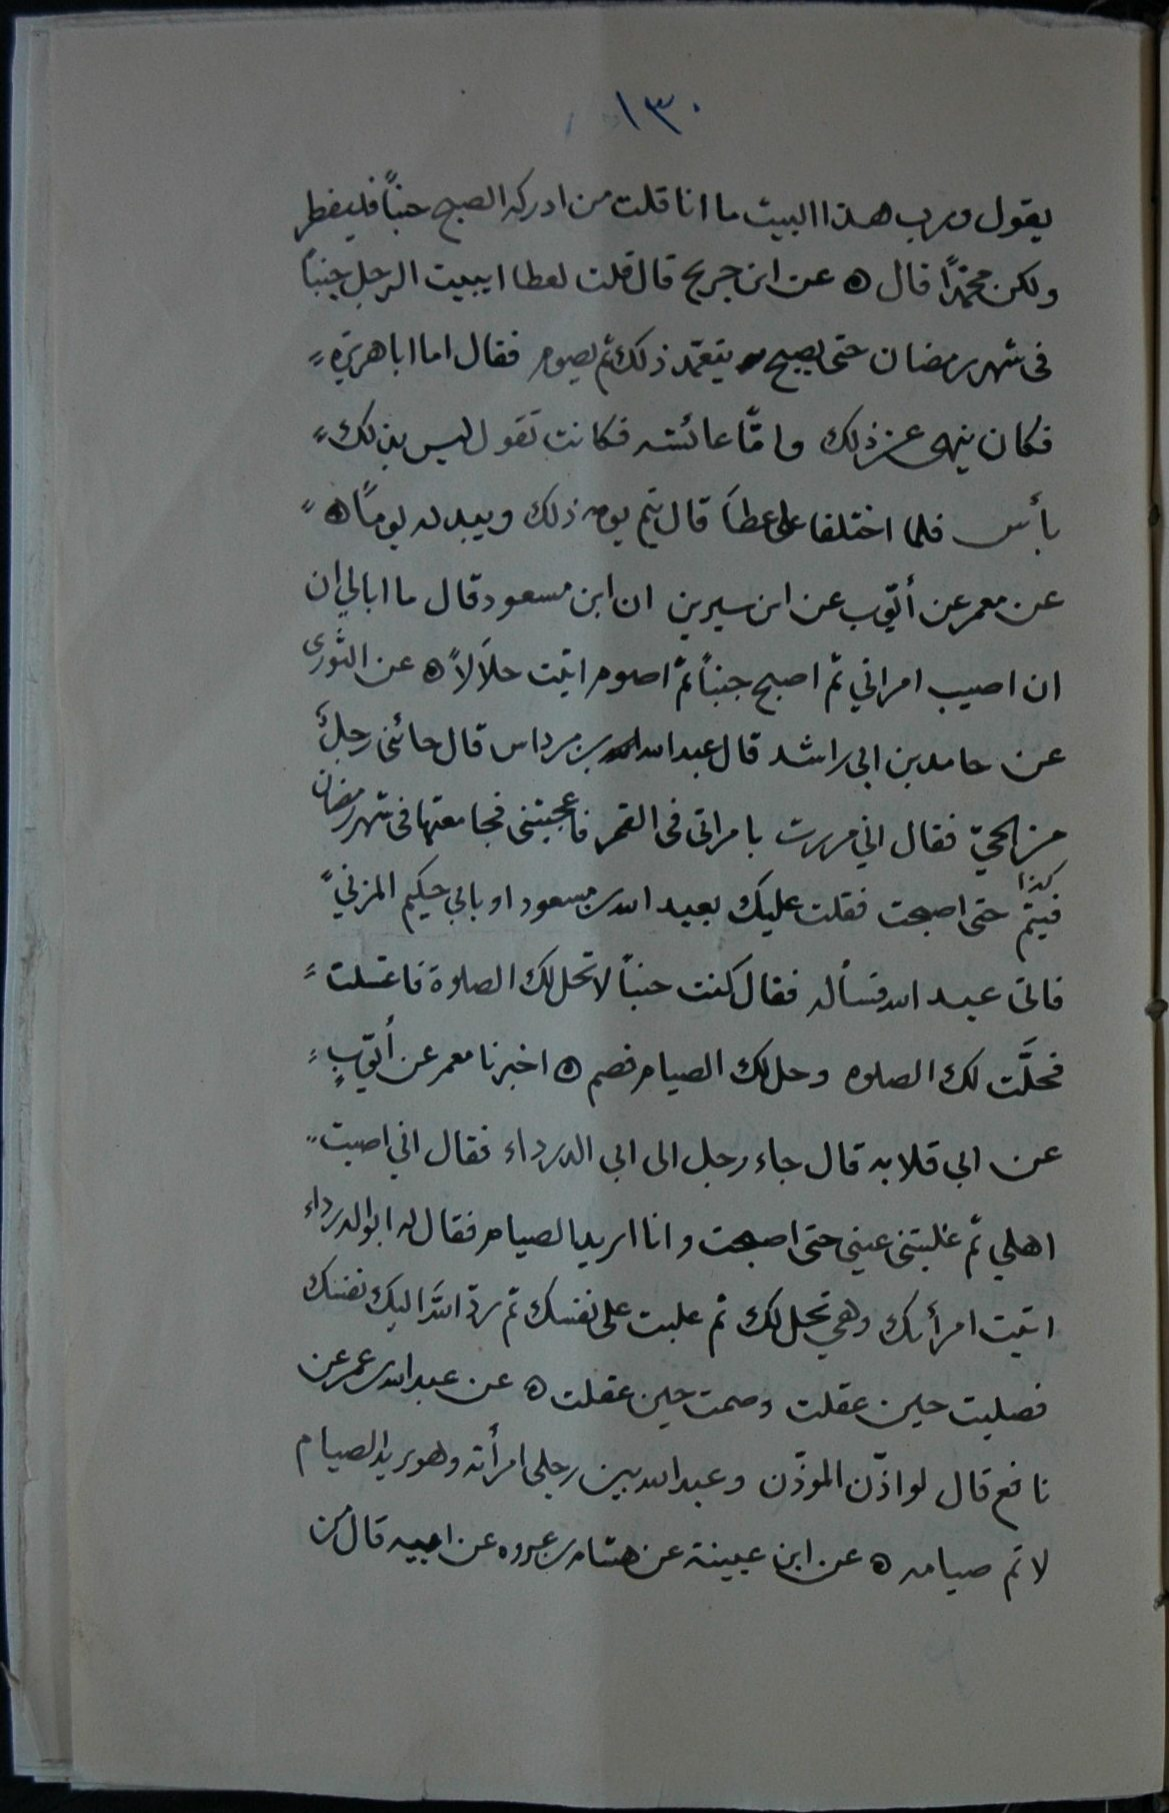 ١٣٠
يقول ورب هذا البيت ما انا قلت من ادركه الصبح جنباً فليفطر
ولكن محمّداً قال ه عن ابن جريج قال قلت لعطا ايبيت الرجل جنباً
فى شهر رمضان حتى يصبح يتعمّد ذلك ثم يصوم فقال اما ابا هريرة
فكان ينهى عن ذلك وامّا عائشه فكانت تقول ليس بذلك
بأس فلما اختلفا على عطاَ قال يتم يومه ذلك ويبدله يوماً ه
عن معمر عن أيّوب عن ابن سيرين ان ابن مسعود قال ما ابالي ان
ان اصيب امراتي ثم اصبح جنباً ثمّ اصوم اتيت حلاَلاً ه عن الثورى
عن حامد بن ابى راشد قال عبد الله بن مرداس قال جائنى رجلٌ
من الحيّ فقال اني مررت بامراتى فى القمر فاعجبتنى فجامعتها فى شهر رمضان
كذا
فيتم حتى اصبحت فقلت عليك بعبد الله بن مسعود او بابي حكيم المزنيّ
فاتى عبد الله فسأله فقال كنت جنباً لا تحل لك الصلوة فاغتسلت
فحلَّت لك الصلوه وحل لك الصيام فصم ه اخبرنا معمر عن أيّوبٍ
عن ابى قلابه قال جاء رجل الى ابى الدرداء فقال اني اصبت
اهلي ثم غلبتنى عيني حتى اصبحت وانا اريد الصيام فقال له ابو الدرداء
اتيت امرأتك وهي تحل لك ثم غلبت على نفسك ثم ردّ اللّه اليك نفسك
فصليت حين عقلت وصمت حين عقلت ه عن عبد الله بن عمر عن
نافع قال لو اذّن الموذّن وعبد الله بين رجلى امرأته وهو يريد الصيام
لاتم صيامه ه عن ابن عيينة عن هشام بن عروه عن ابيه قال من